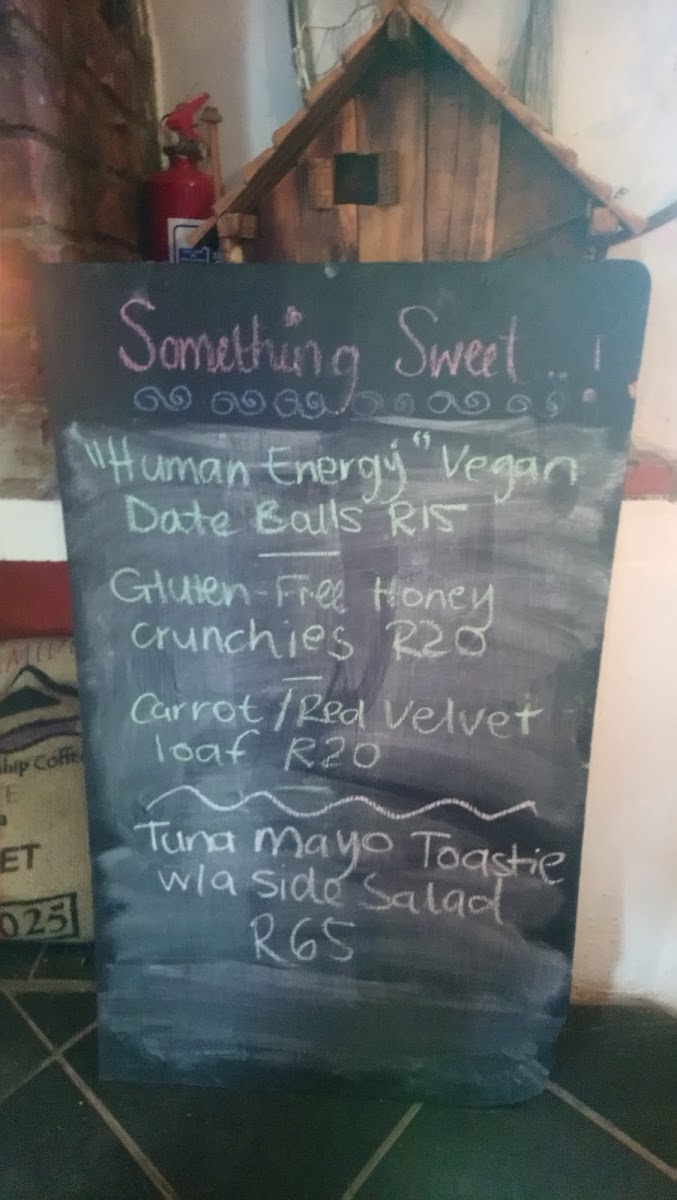 Something Sweet...!
"Human Energy" Vegan
Date Balls R15
Gluten-Free Honey
crunchies R20
Carrot/Red Velvet
loaf R20
Tuna Mayo Toastie
w/a side Salad
R65
ET
025